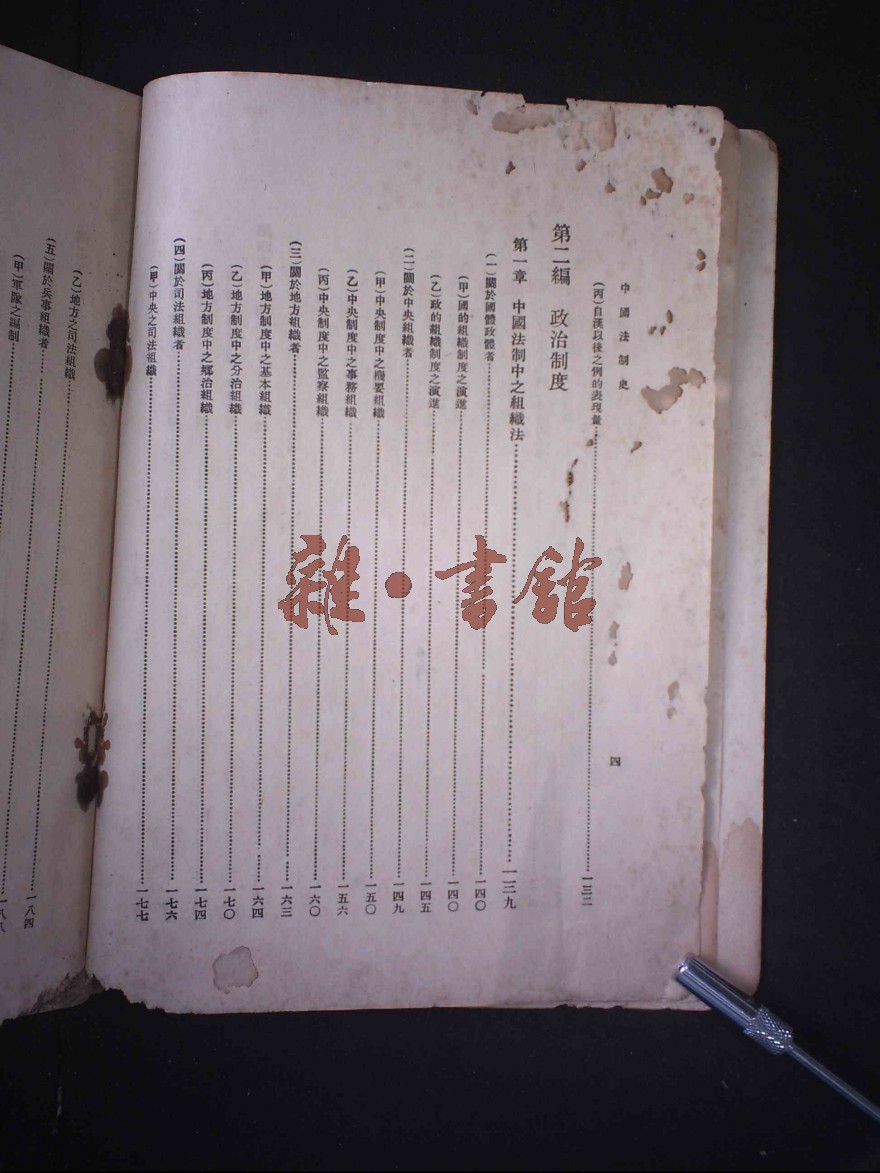 中國法制史
四
(丙)自漢以後之例的表現量……一三二
第二編 政治制度
第一章 中國法制中之組織法……一三九
(一)關於國體政體者……一四〇
(甲)國的組織制度之演進……一四〇
(乙)政的組織制度之演進……一四五
(二)關於中央組織者……一四九
(甲)中央制度中之機要組織……一五〇
(乙)中央制度中之事務組織……一五六
(丙)中央制度中之監察組織……一六〇
(三)關於地方組織者……一六三
(甲)地方制度中之基本組織……一六四
(乙)地方制度中之分治組織……一七〇
(丙)地方制度中之鄉治組織……一七四
(四)關於司法組織者……一七六
(甲)中央之司法組織……一七七
(乙)地方之司法組織……一八四
(五)關於兵事組織者……一八八
(甲)軍隊之編制……
雜·書館